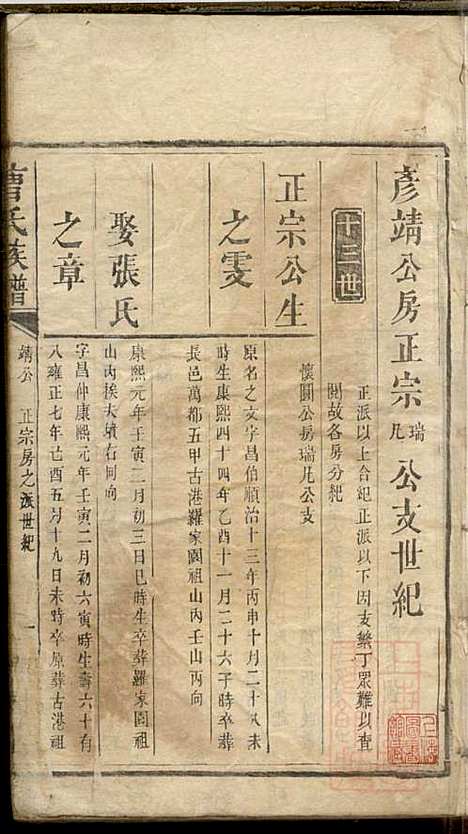 彥靖公房正宗瑞凡公支世紀
正派以上合紀正派以下因支繁丁眾難以查
閱故各房分紀
十三世
懷園公房瑞凡公支
正宗公生
之雯
原名之文字昌伯順治十三年丙申十月二十八未
時生康熙四十四年乙酉十一月二十六子時卒葬
長邑萬都五甲古港羅家園祖山內壬山丙向
娶張氏
康熙元年壬寅二月初三日巳時生卒葬羅家園祖
山內挨夫墳右同向
之章
字昌仲康熙元年壬寅二月初六寅時生壽六十有
八雍正七年己酉五月十九日未時卒原葬古港祖
曹氏族譜
靖公 正宗房之派世紀
一